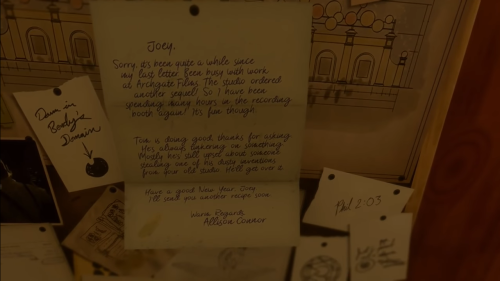 Joey,
Sorry, its been quite a while since
my last letter. Been busy with work
at Archgate Films. The studio ordered
another sequel! So I have been
spending many hours in the recording
booth again! It's fun though.
Tom is doing good, thanks for asking.
He's always tinkering on something.
Mostly he's still upset about someone
stealing one of his
from your old studio. He'll get over it.
Have a good New Year, Joey
I'll send you another recipe soon.
Warm Regards,
Allison Connor
Down in
Domain
Phil 2:03